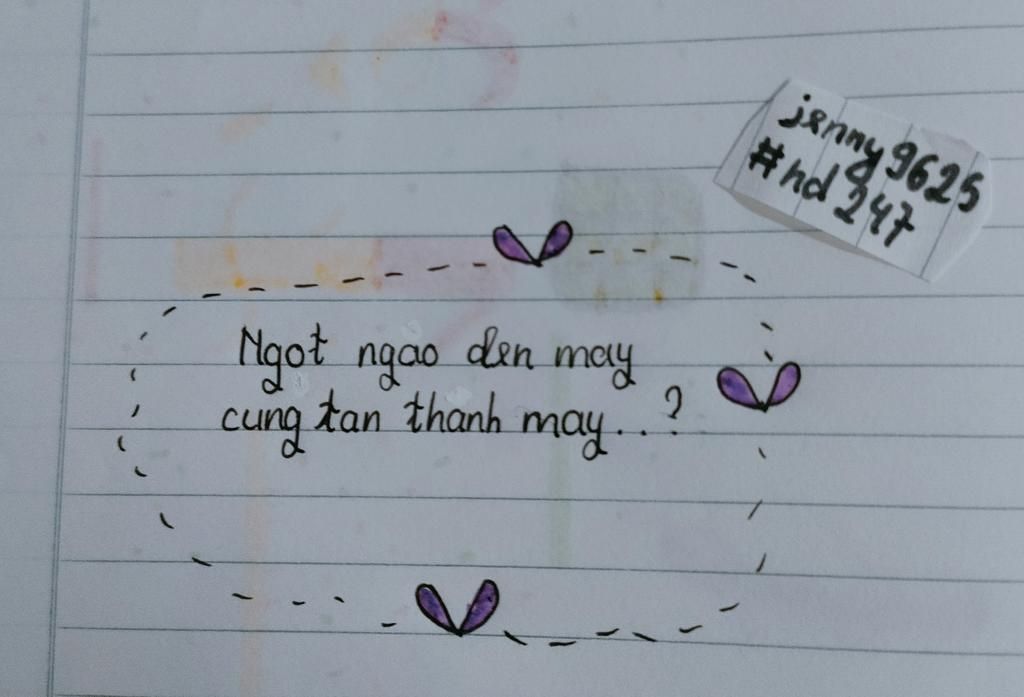 jenny9625
#hd247
Ngot ngao den may
cung tan thanh may...?